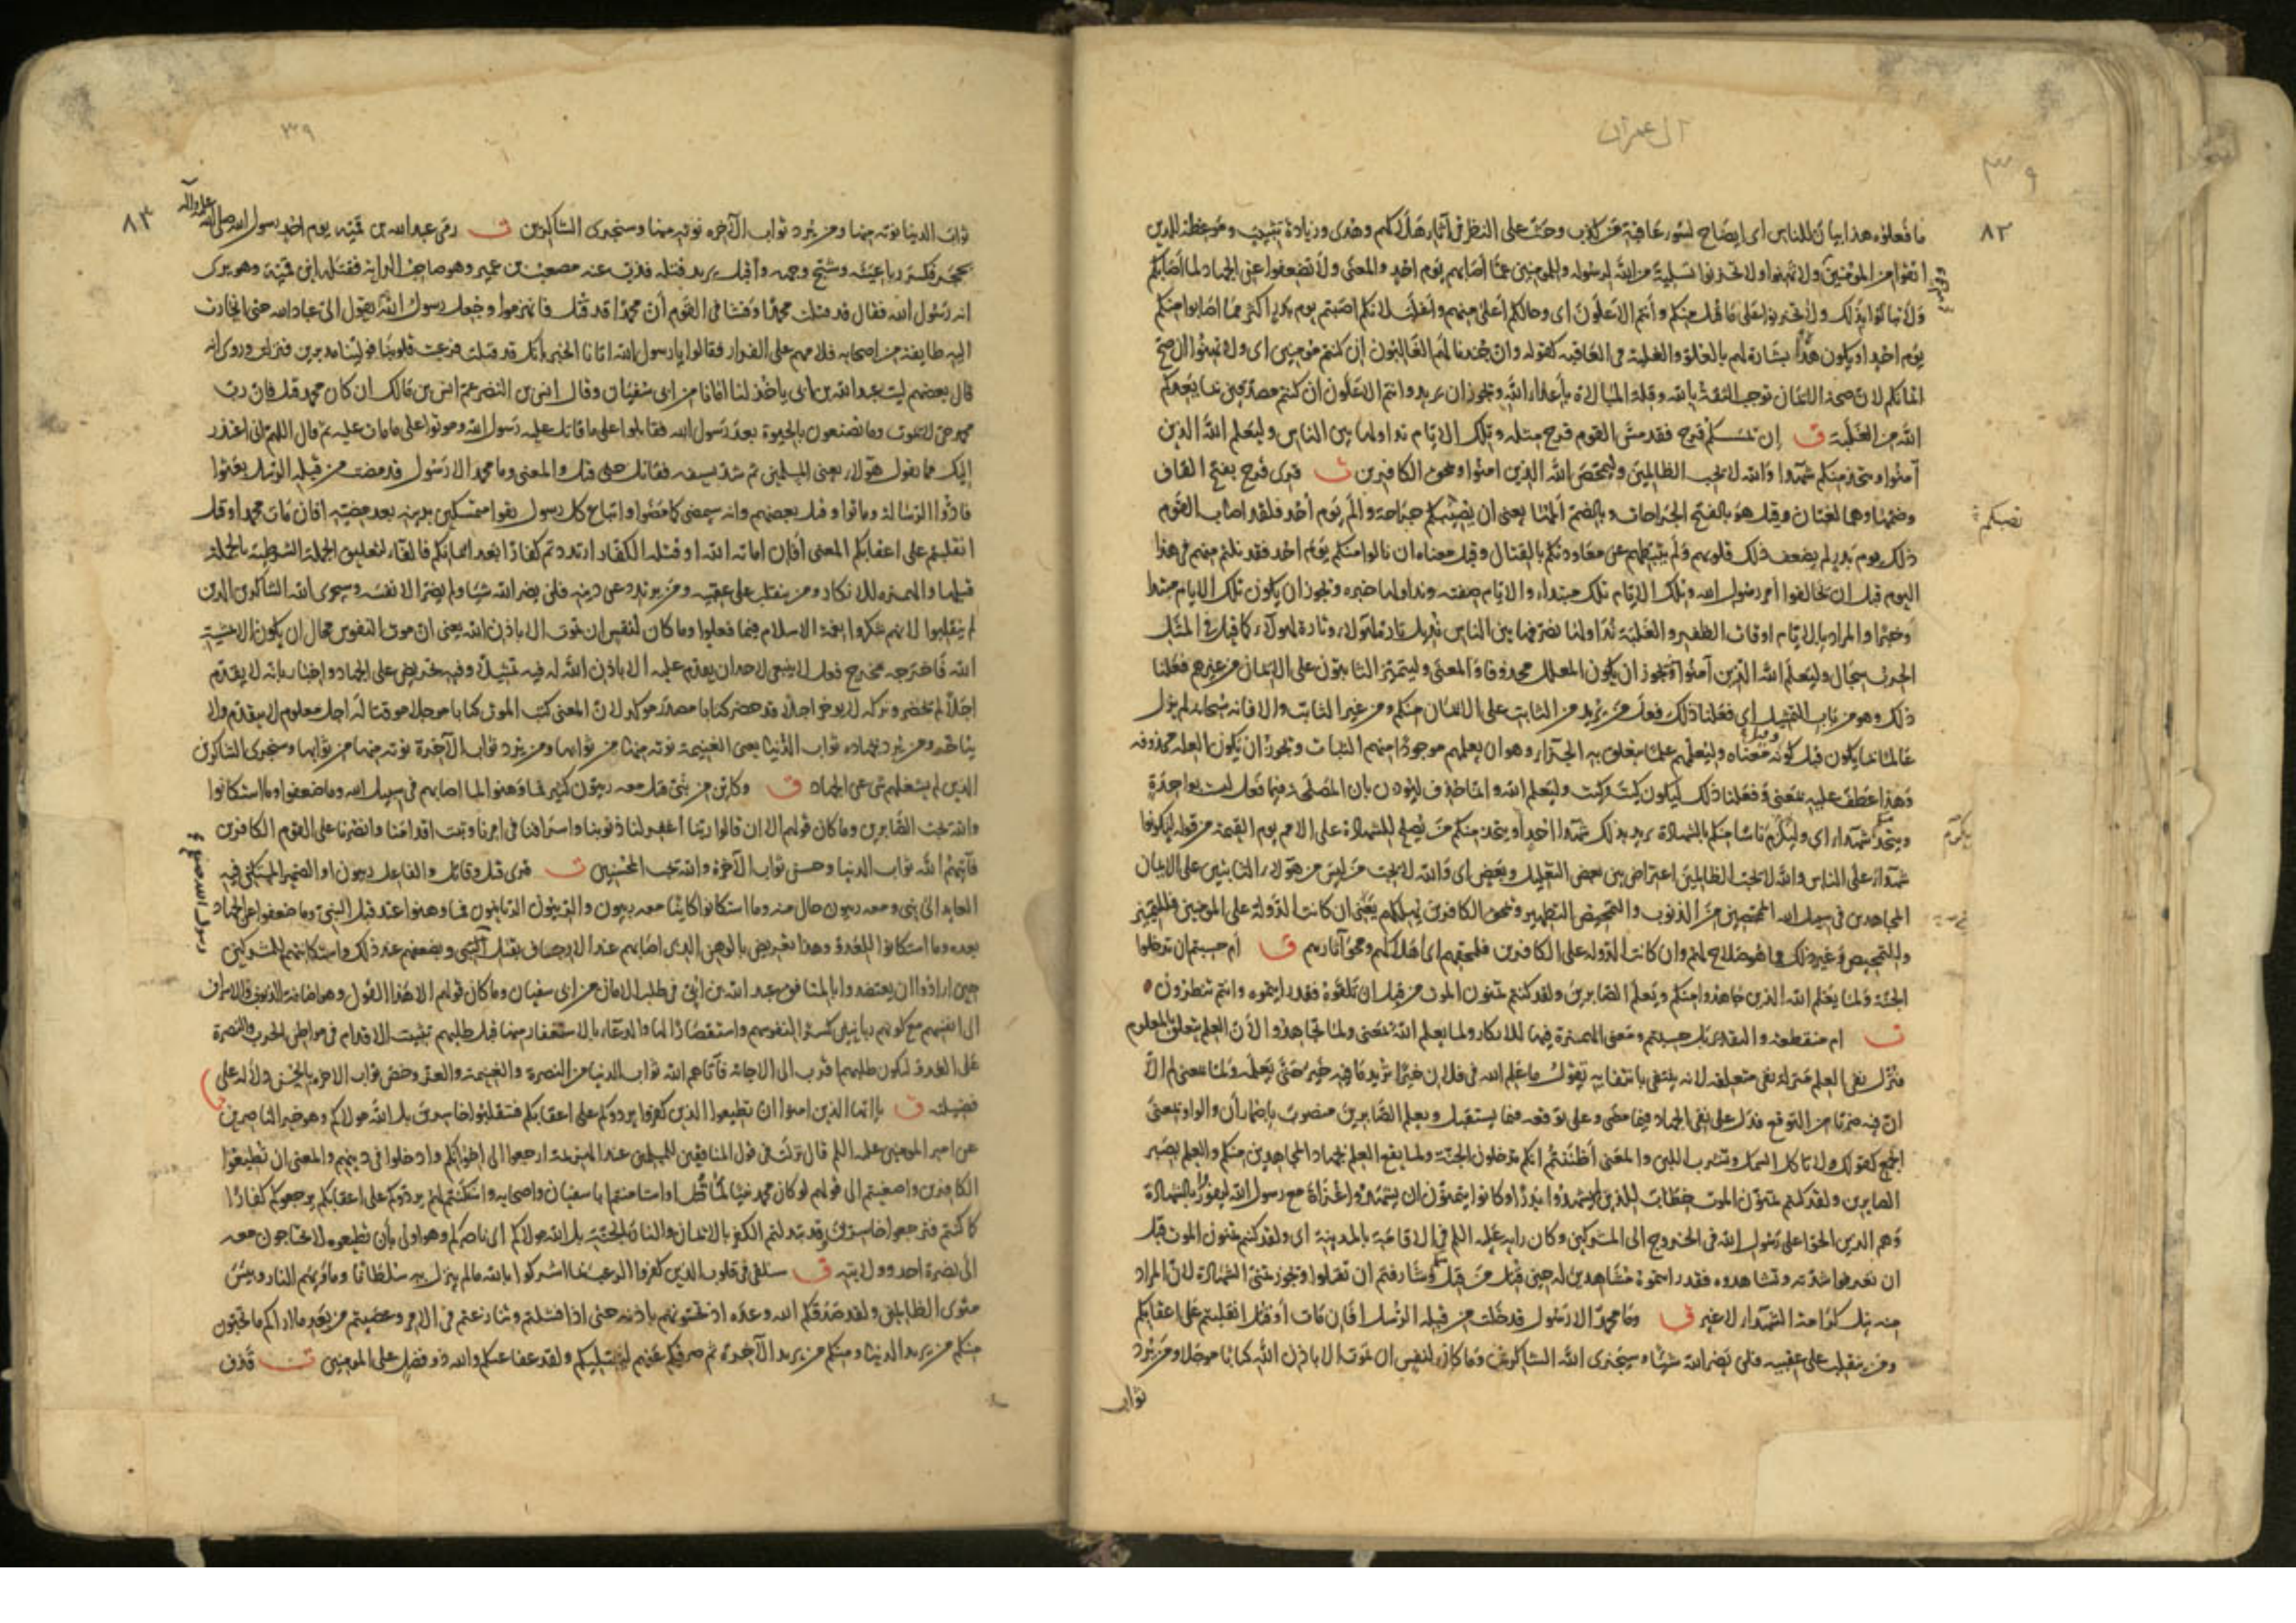 ال عمران
٣٩
٨٢
ما فعلوه هذا بيان للناس اى ايضاح لسوء عاقبة من كذب وحث على النظر فى آثار هلاكهم وهدى وزيادة تثبيت وموعظة للذين
اتقوا من المؤمنين ولا تهنوا ولا تحزنوا تسلية من الله لرسوله وللمومنين عما اصابهم يوم احد والمعنى ولا تضعفوا عن الجهاد لما اصابكم
ولا تبالوا بذلك ولا تحزنوا على من قتل منكم وانتم الاعلون اى وحالكم اعلى منهم واغلب لانكم اصبتم يوم بدر اكثر مما اصابوا منكم
يوم احد او يكون هذا بشارة لهم بالعلو والغلبة فى العاقبه كقوله وان جندنا لهم الغالبون ان كنتم مومنين اى ولا تهنوا ان صح
ايمانكم لان صحة الايمان توجب الثقة بالله وقلة المبالاة باعداء الله ويجوز ان يريد وانتم الاعلون ان كنتم مصدقين بما يعدكم
الله من الغلبة ق ان يمسسكم قرح فقد مس القوم قرح مثله وتلك الايام نداولها بين الناس وليعلم الله الذين
آمنوا ويتخذ منكم شهدا والله لا يحب الظالمين وليمحص الله الذين امنوا ويمحق الكافرين ت قرى قرح بفتح القاف
وضمها وهما لغتان وقيل هو بالفتح الجراحات وبالضم المها يعنى ان يصيبكم جراحة والم يوم احد فلقد اصاب القوم
نصبكم
ذلك يوم بدر ولم يضعف ذلك قلوبهم ولم يثبطهم عن معاودتكم بالقتال وقيل معناه ان نالوا منكم يوم احد فقد نلتم منهم فى هذا
اليوم قبل ان يخالفوا امر رسول الله وتلك الايام تلك مبتداء والايام صفته ونداولها خبره ويجوز ان يكون تلك الايام مبتدا
وخبرا والمراد بالايام اوقات الظفر والغلبة نداولها نصرفها بين الناس نديل تارة لهولاء وتارة لهولاء كما قيل فى المثل
الحرب سجال وليعلم الله الذين آمنوا يجوز ان يكون المعلل محذوفا والمعنى وليتميز الثابتون على الايمان من غيرهم فعلنا
ذلك وهو من باب التمثيل اى فعلنا ذلك فعل من يريد من الثابت على الايمان منكم ومن غير الثابت والا فانه سبحانه لم يزل
عالما بما يكون قبل كونه وقيل معناه وليعلمهم علما يتعلق به الجزاء وهو ان يعلمهم موجودا منهم الثبات ويجوز ان يكون العله محذوفه
وهذا عطف عليه بمعنى وفعلنا ذلك ليكون كيت وكيت وليعلم الله وانما حذف ليوذن بان المصلحة فيما فعل ليست بواحدة
ويتخذ منكم شهداء اى وليكرم ناسا منكم بالشهادة يريد بذلك شهدا احد او يتخذ منكم من يصلح للشهادة على الامم يوم القيمة من قوله ليكونوا
يكرم
شهداء على الناس والله لا يحب الظالمين اعتراض بين بعض التعليل وبعض اى والله لا يحب من ليس من هولاء الثابتين على الايمان
المجاهدين فى سبيل الله الممحصين من الذنوب والتمحيص التطهير ويمحق الكافرين يهلكهم يعنى ان كانت الدولة على المومنين فللتمييز
والتمحيص وغير ذلك مما هو صلاح لهم وان كانت الدوله على الكافرين فلمحقهم اى اهلاكهم ومحو آثارهم ق ام حسبتم ان تدخلوا
الجنة ولما يعلم الله الذين جاهدوا منكم ويعلم الصابرين ولقد كنتم تمنون الموت من قبل ان تلقوه فقد رايتموه وانتم تنظرون
ت ام منقطعه والتقدير بل حسبتم ومعنى الهمزة فيها للانكار ولما يعلم الله بمعنى ولما تجاهدوا لان العلم يتعلق بالمعلوم
فنزل نفى العلم منزلة نفى متعلقه لانه ينتفى بانتفايه تقول ما علم الله فى فلان خيرا تريد ما فيه خير حتى يعلمه ولما بمعنى لم الا
ان فيه ضربا من التوقع فدل على نفى الجهاد فيما مضى وعلى توقعه فيما يستقبل ويعلم الصابرين منصوب باضمار ان والواو بمعنى
الجمع كقولك لا تاكل السمك وتشرب اللبن والمعنى اظننتم انكم تدخلون الجنة ولما يقع العلم بجهاد المجاهدين منكم والعلم بصبر
الصابرين ولقد كنتم تمنون الموت خطاب للذين لم يشهدوا بدرا وكانوا يتمنون ان يشهدوا غزاة مع رسول الله ليفوزوا بالشهادة
وهم الذين الحوا على رسول الله فى الخروج الى المشركين وكان رايه عليه السلم فى الاقامة بالمدينة اى ولقد كنتم تمنون الموت قبل
ان تعرفوا شدته وتشاهدوه فقد رايتموه مشاهدين له حين قتل من قتل وشارفتم ان تقتلوا ويجوز تمنى الشهادة لان المراد
منه نيل كرامة الشهداء لا غير ق وما محمد الا رسول قد خلت من قبله الرسل افان مات او قتل انقلبتم على اعقابكم
ومن ينقلب على عقبيه فلن يضر الله شيئا وسيجزى الله الشاكرين وما كان لنفس ان تموت الا باذن الله كتابا موجلا ومن يرد
ثواب
٣٣٩
٨٣
ثواب الدنيا نوته منها ومن يرد ثواب الآخره نوته منها وسنجزى الشاكرين ت رمى عبد الله بن قميه يوم احد رسول الله صلى الله عليه وآله
بحجر فكسر رباعيته وشج وجهه واقبل يريد قتله فذب عنه مصعب بن عمير وهو صاحب الرايه فقتله ابن قميئة وهو يرى
انه رسول الله فقال قد قتلت محمدا وفشا فى القوم ان محمدا قد قتل فانهزموا وجعل رسول الله يقول الى عباد الله حتى انحازت
اليه طايفة من اصحابه فلامهم على الفرار فقالوا يا رسول الله اتانا الخبر بانك قد قتلت فرعبت قلوبنا فولينا مدبرين فنزلت وروى انه
قال بعضهم ليت عبد الله بن ابى ياخذ لنا امانا من ابى سفيان وقال انس بن النضر عم انس بن مالك ان كان محمد قتل فان رب
محمد حى لا يموت وما تصنعون بالحيوة بعد رسول الله فقاتلوا على ما قاتل عليه رسول الله وموتوا على ما مات عليه ثم قال اللهم انى اعتذر
اليك مما يقول هولاء يعنى المسلمين ثم شد بسيفه فقاتل حتى قتل والمعنى وما محمد الا رسول قد مضت من قبله الرسل بعثوا
فادوا الرسالة وماتوا وقتل بعضهم وانه سيمضى كما مضوا واتباع كل رسول بقوا متمسكين بدينه بعد مضيه افان مات محمد او قتل
انقلبتم على اعقابكم المعنى افان اماته الله او قتله الكفار ارتددتم كفارا بعد ايمانكم فالفاء لتعليق الجملة الشرطية بالجملة
قبلها والهمزه للانكار ومن ينقلب على عقبيه ومن يرتدد عن دينه فلن يضر الله شيئا ولم يضر الا نفسه وسيجزى الله الشاكرين الذين
لم ينقلبوا لانهم شكروا نعمة الاسلام فيما فعلوا وما كان لنفس ان تموت الا باذن الله يعنى ان موت النفوس محال ان يكون الا بمشية
الله فاخرجه مخرج فعل لا ينبغى لاحد ان يقدم عليه الا باذن الله له فيه تمثيلا وفيه تحريض على الجهاد واخبار بانه لا يقدم
اجلا لم يحضر وتركه لا يوخر اجلا قد حضر كتابا مصدر موكد لان المعنى كتب الموت كتابا موجلا موقتا له اجل معلوم لا يتقدم ولا
يتاخر ومن يرد بجهاده ثواب الدنيا يعنى الغنيمة نوته منها من ثوابها ومن يرد ثواب الآخرة نوته منها من ثوابها وسنجزى الشاكرين
الذين لم يشغلهم شى عن الجهاد ق وكاين من نبى قتل معه ربيون كثير فما وهنوا لما اصابهم فى سبيل الله وما ضعفوا وما استكانوا
والله يحب الصابرين وما كان قولهم الا ان قالوا ربنا اغفر لنا ذنوبنا واسرافنا فى امرنا وثبت اقدامنا وانصرنا على القوم الكافرين
فآتيهم الله ثواب الدنيا وحسن ثواب الآخرة والله يحب المحسنين ت قرى قتل وقاتل والفاعل ربيون او الضمير المستكن فيه
رسول الله
العايد الى نبى ومعه ربيون حال منه وما استكانوا كاينا معه ربيون والربيون الربانيون فما وهنوا عند قتل النبى وما ضعفوا عن الجهاد
بعده وما استكانوا للعدو وهذا تعريض بالوهن الذى اصابهم عند الارجاف بقتل النبى وبضعفهم عند ذلك واستكانتهم للمشركين
حين ارادوا ان يعتضدوا بالمنافق عبد الله بن ابى فى طلب الامان من ابى سفيان وما كان قولهم الا هذا القول وهو اضافة الذنوب والاسراف
الى انفسهم مع كونهم ربانيين كسرا لنفوسهم واستقصارا لها والدعاء بالاستغفار منها قبل طلبهم تثبيت الاقدام فى مواطن الحرب والنصرة
على العدو ليكون طلبهم اقرب الى الاجابة فآتاهم الله ثواب الدنيا من النصرة والغنيمة والعز وخص ثواب الاخره بالحسن دلالة على
فضيلته ق يا ايها الذين امنوا ان تطيعوا الذين كفروا يردوكم على اعقابكم فتنقلبوا خاسرين بل الله مولاكم وهو خير الناصرين ت
عن امير المومنين عليه السلم قال نزلت فى قول المنافقين للمسلمين عند الهزيمة ارجعوا الى اخوانكم وادخلوا فى دينهم والمعنى ان تطيعوا
الكافرين واصغيتم الى قولهم لو كان محمد نبيا لما قتل او استامنتم ابا سفيان واصحابه واستكنتم لهم يردوكم على اعقابكم يرجعوكم كفارا
كما كنتم فترجعوا خاسرين قد تبدلتم الكفر بالايمان والنار بالجنة بل الله مولاكم اى ناصركم وهو اولى بان تطيعوه لا تحتاجون معه
الى نصرة احد وولايته ق سنلقى فى قلوب الذين كفروا الرعب بما اشركوا بالله ما لم ينزل به سلطانا وماويهم النار وبئس
مثوى الظالمين ولقد صدقكم الله وعده اذ تحسونهم باذنه حتى اذا فشلتم وتنازعتم فى الامر وعصيتم من بعد ما اراكم ما تحبون
منكم من يريد الدنيا ومنكم من يريد الآخرة ثم صرفكم عنهم ليبتليكم ولقد عفا عنكم والله ذو فضل على المومنين ت قذف